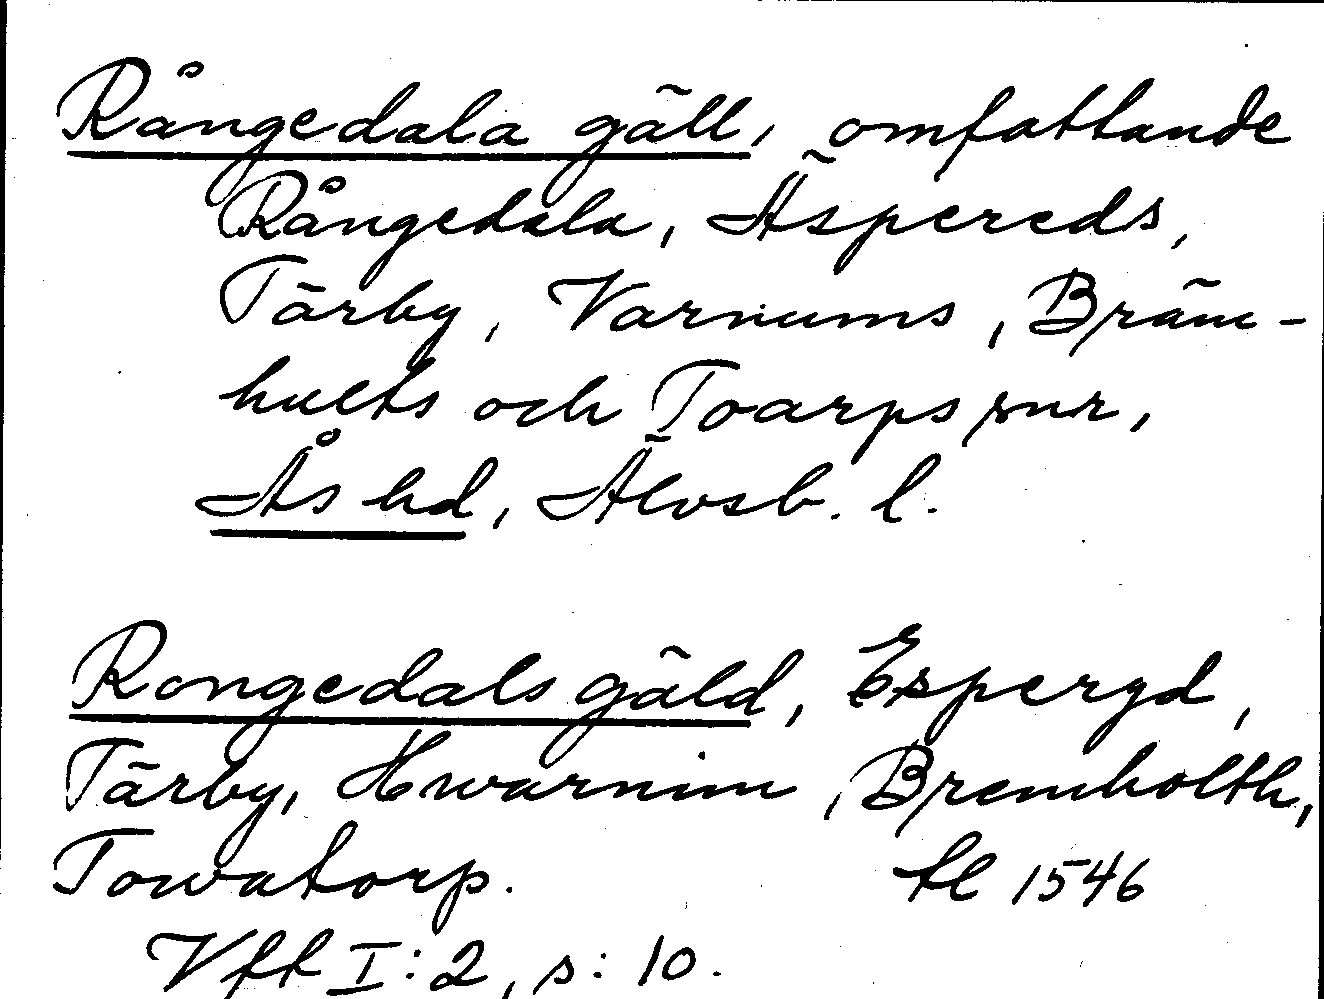 Rångedala gäll, omfattande
Rångedala, Äspereds,
Tärby, Varnums, Bräm-
hults och Toarps snr,
Ås hd, Älvsb. l.
Rongedals gäld, Espergd,
Tärby, Hwarnim, Bremholth,
Towatorp. tl 1546
Vff I:2, s: 10.